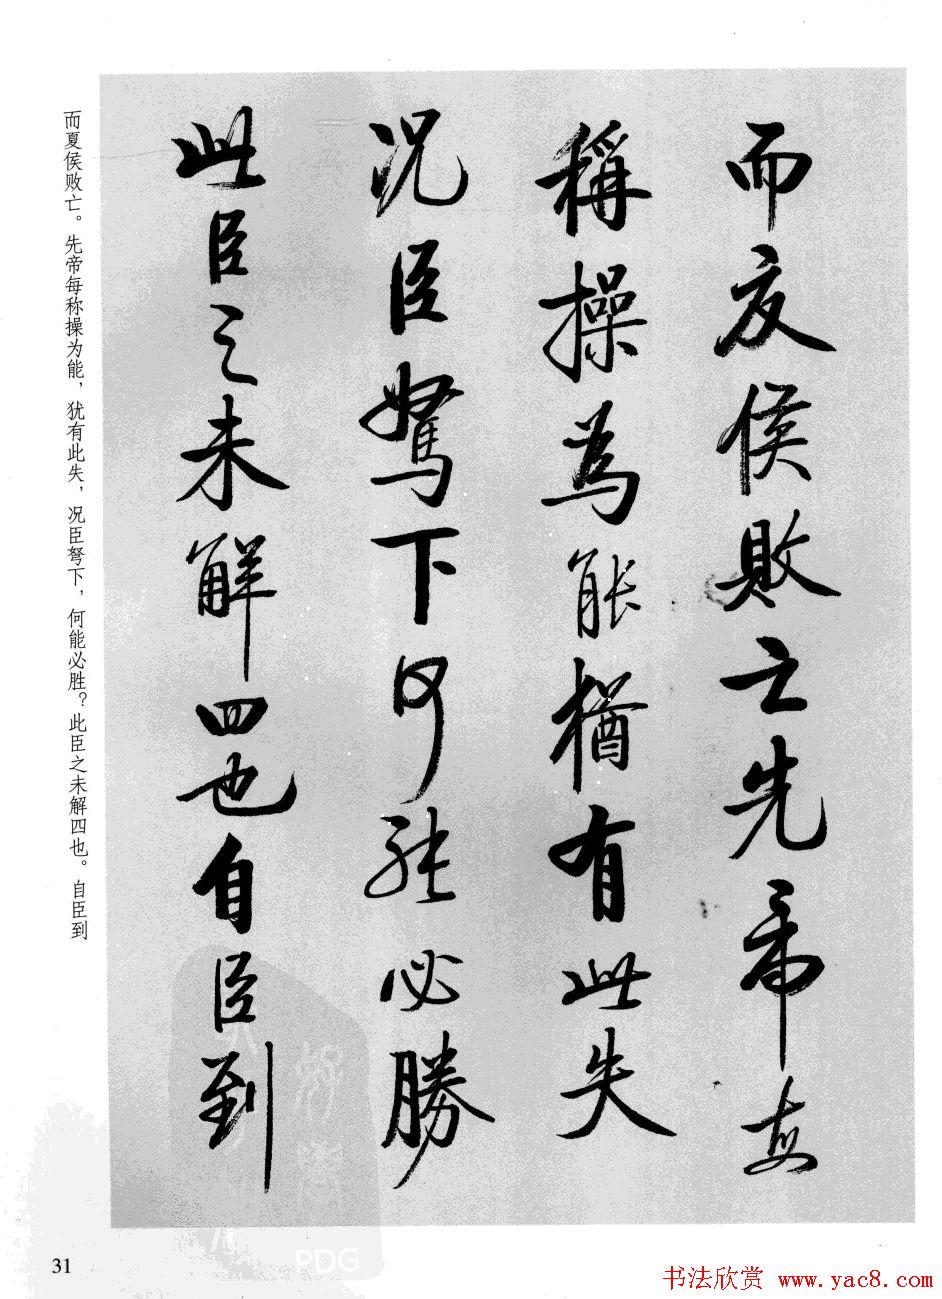 而夏侯敗亡先帝每
稱操為能猶有此失
况臣駑下何能必勝
此臣之未解四也自臣到
而夏侯败亡。先帝每称操为能，犹有此失，况臣驽下，何能必胜？此臣之未解四也。自臣到
31
PDG
书法欣赏 www.yac8.com